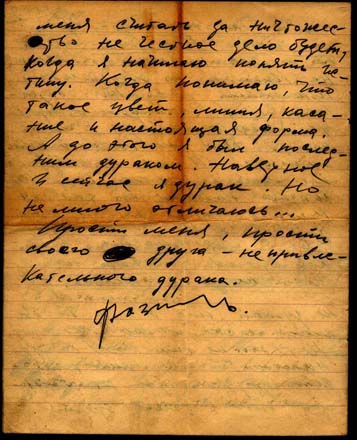 меня считать за ничтожес-
тво не честное дело будет,
когда я начинаю понять ис-
тину. Когда понимаю, что
такое цвет, линия, каса-
ние и настоящая форма.
А до этого я был послед-
ним дураком. Наверное
и сейчас я дурак. Но
не много отличаюсь...
Прости меня, прости
своего друга - непривле-
кательного дурака.